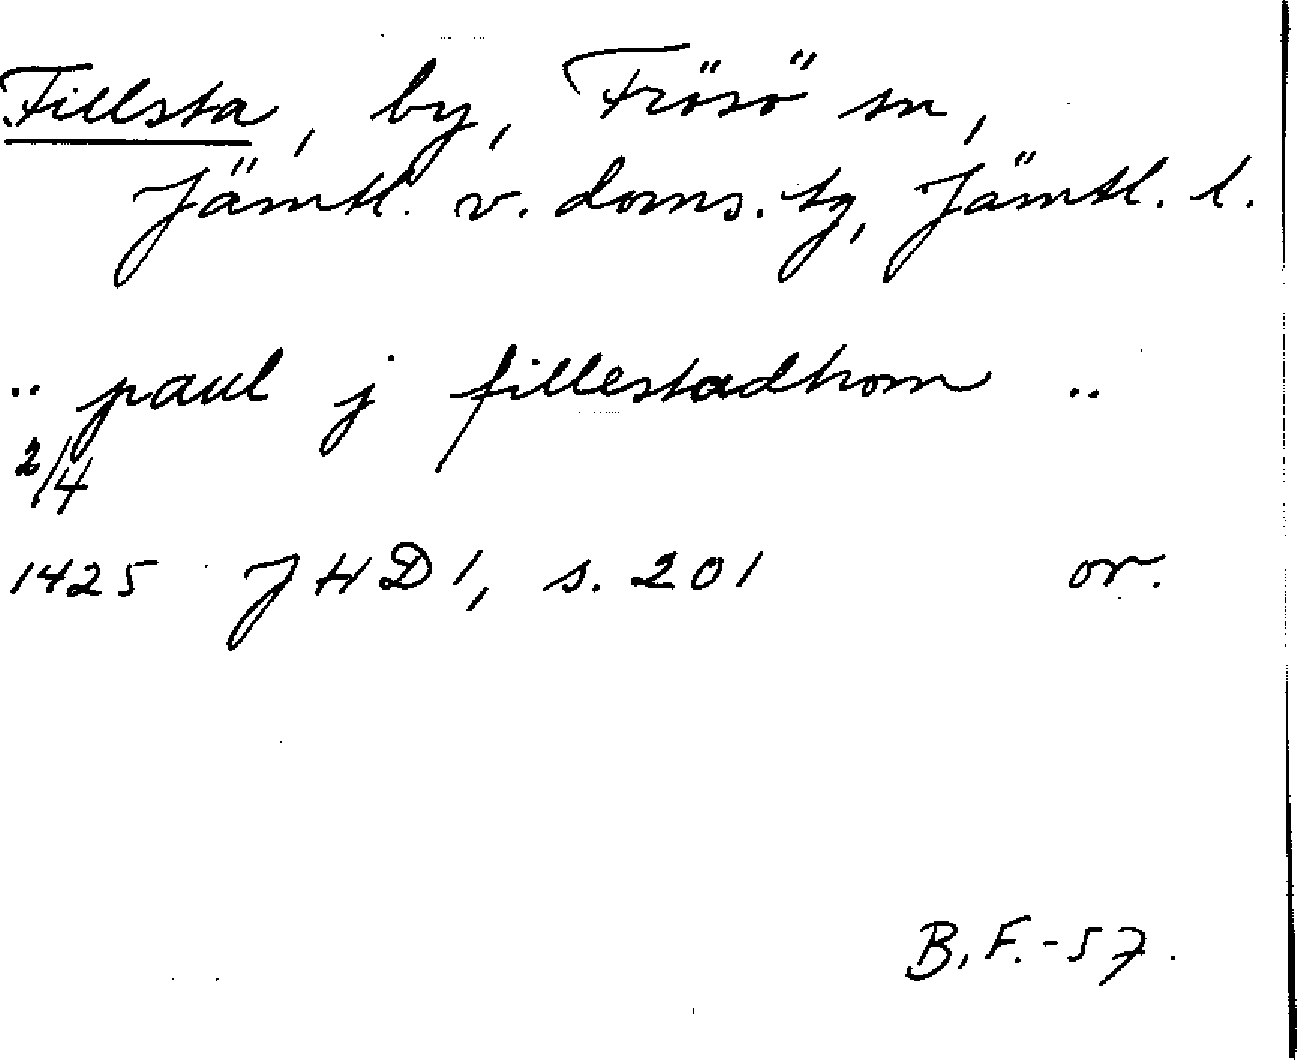 Fillsta, by, Frösö sn,
Jämtl. v. doms. tg, Jämtl. l.
.. paul j fillestadhom ..
2/4
1425 JHD 1, s. 201 or.
B.F.-57.